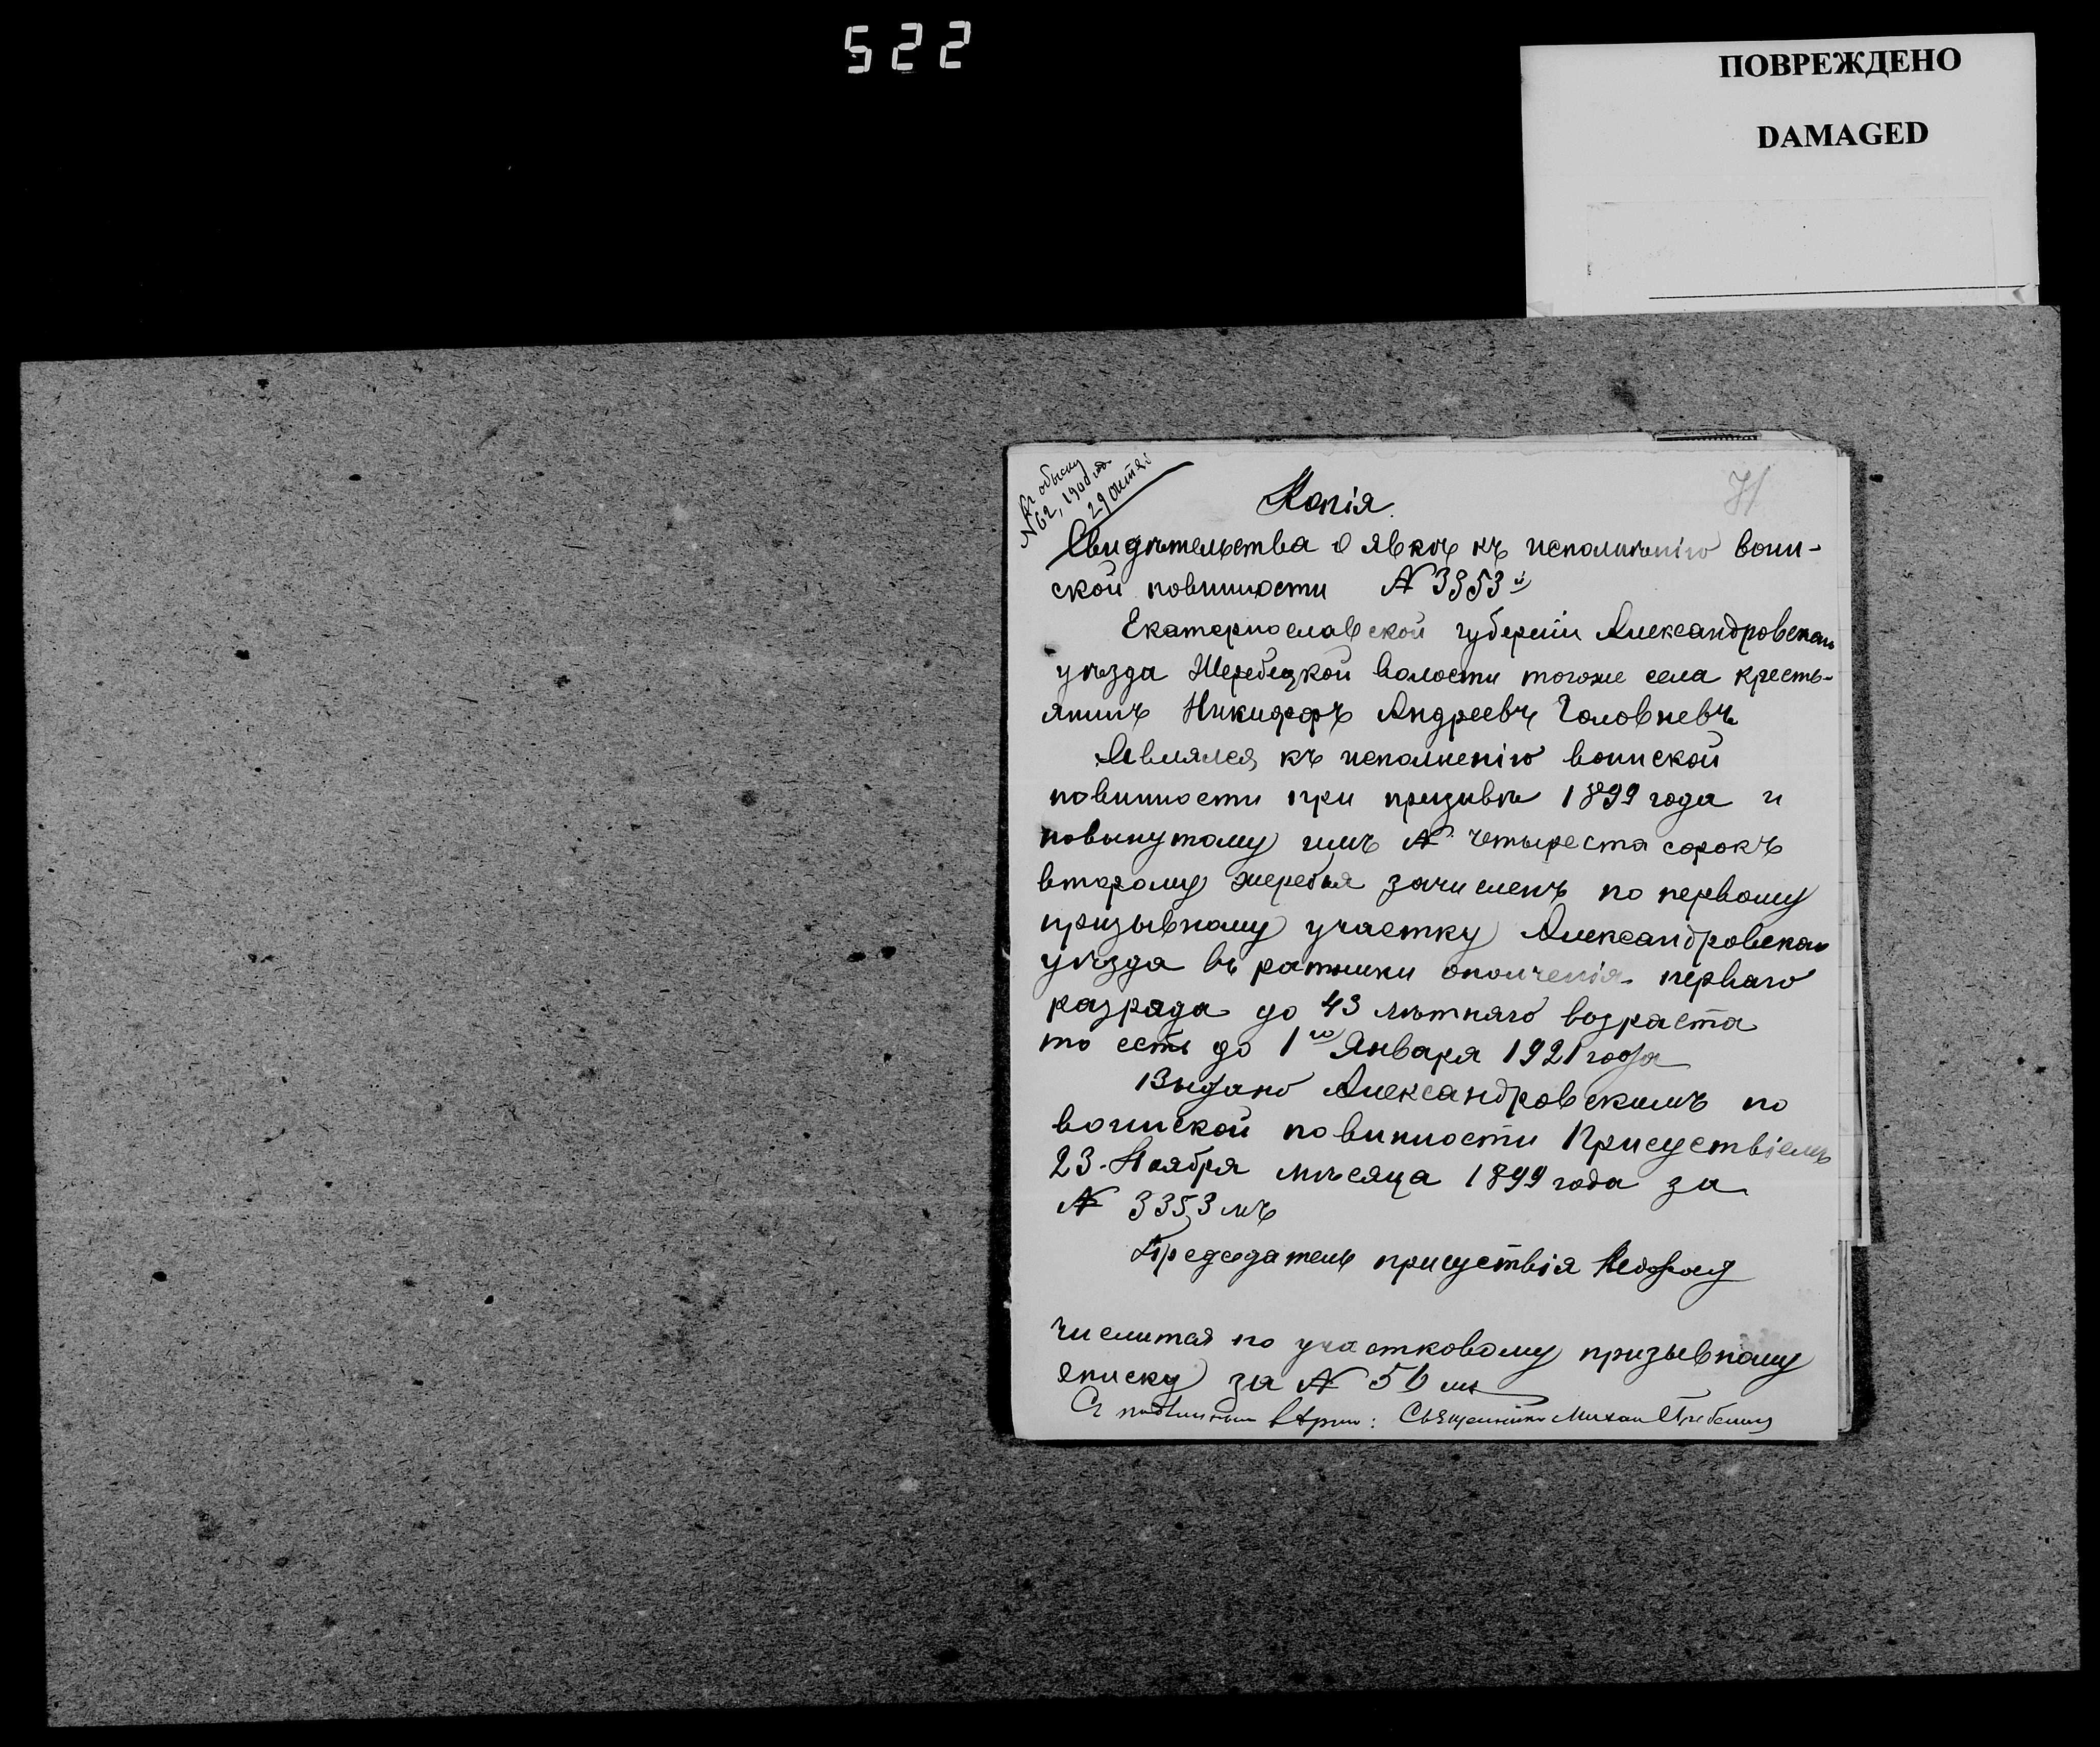 522
ПОВРЕЖДЕНО
DAMAGED
Къ обыску
N 62, 1900 года
29 октяб
71
Копія.
Свидѣтельства о явкѣ къ исполненію воин-
ской повинности N 3353й
Екатеринославской губерніи Александровскаго
уѣзда Жеребецкой волости тогоже села кресть-
янинъ Никифоръ Андреевъ Головневъ
Являлся къ исполненію воинской
повинности при призывѣ 1899 года и
повынутому имъ N четыреста сорокъ
второму жеребья зачисленъ по первому
призывному участку Александровскаго
уѣзда въ ратники ополченія перваго
разряда до 43 лѣтняго возраста
то есть до 1го Января 1921 года
Выдано Александровскимъ по
воинской повинности Присуствіемъ
23 Ноября мѣсяца 1899 года за
N 3353 мъ
Предсѣдатель присуствія
числится по участковому призывному
списку за N
Съ подлиннымъ вѣрно: Священникъ Михаил